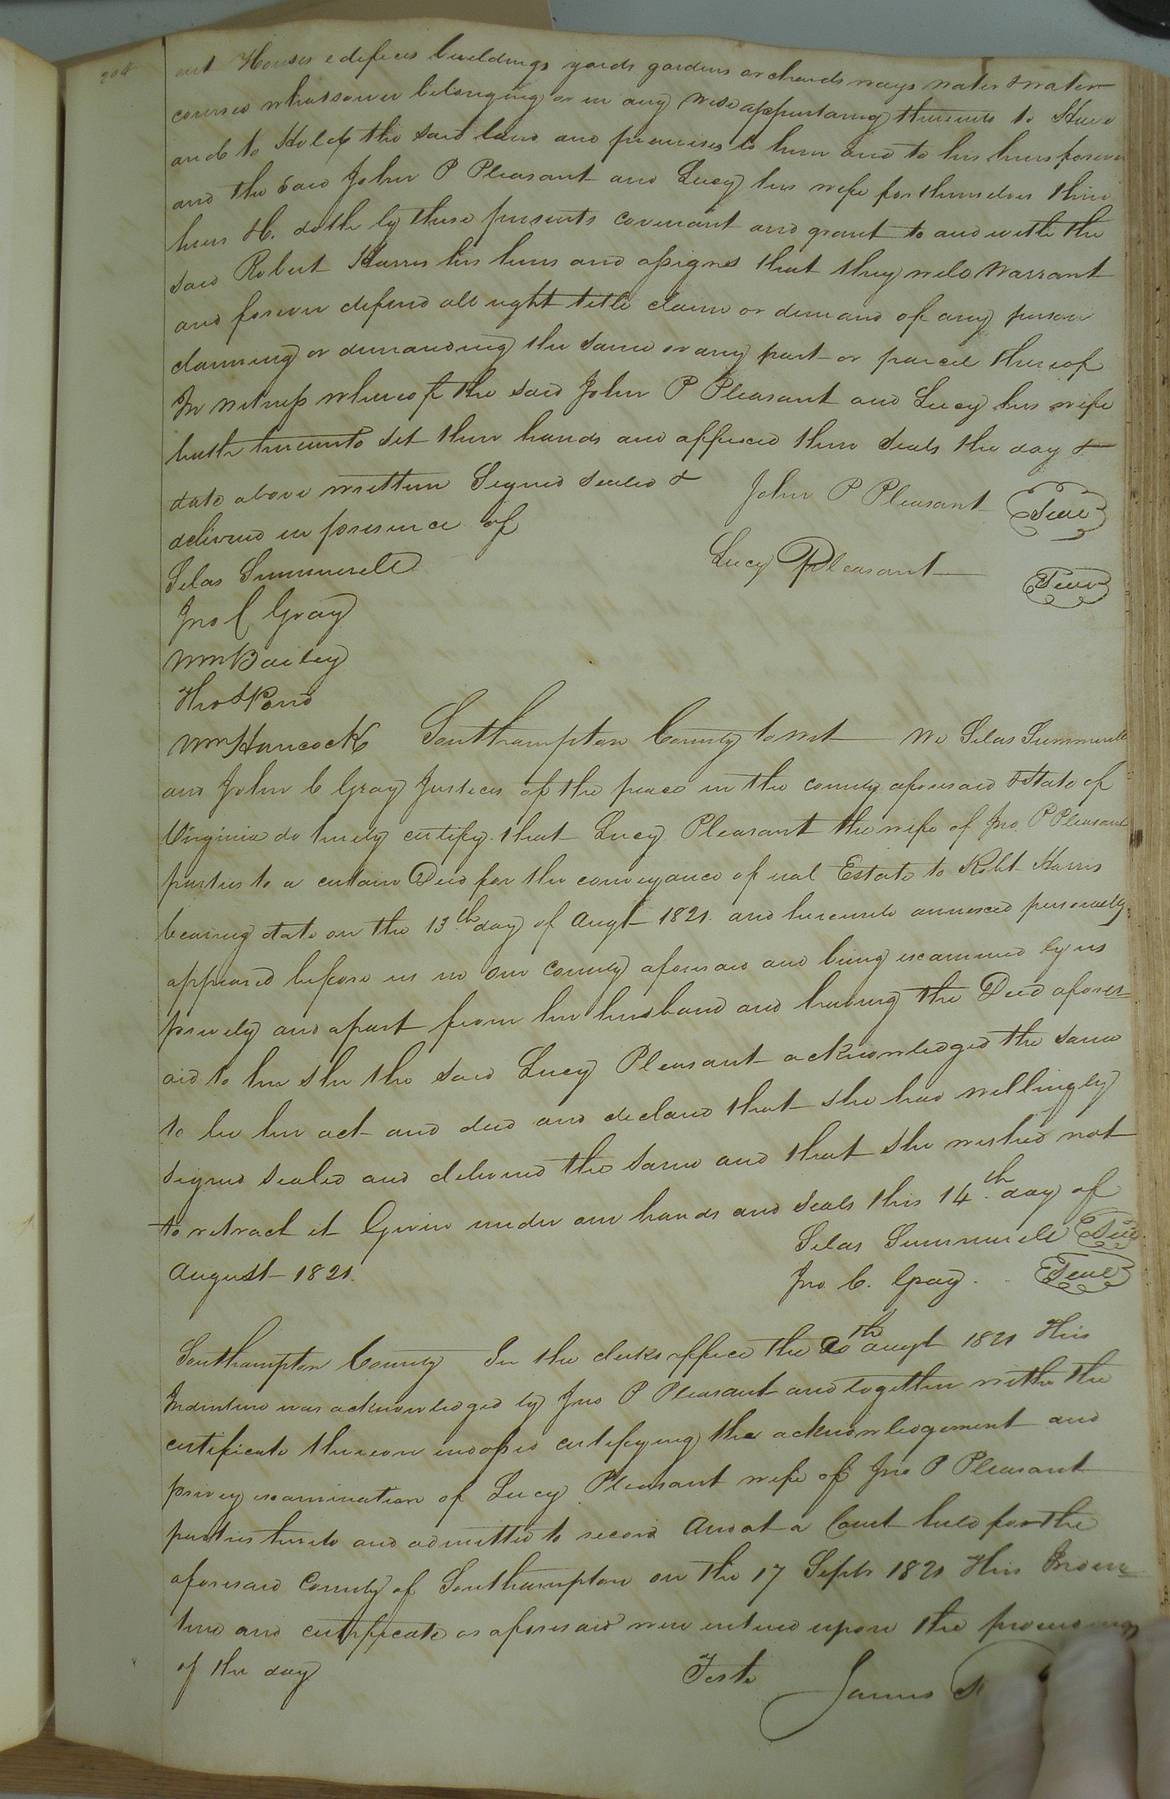 304
out Houses edifices buildings yards gardens orchards ways water & water
courses whatsoever belonging or in any wise appertaining thereunto to Have
and to Hold the said land and premises to him and to his heirs forever
and the said John P Pleasant and Lucy his wife for themselves their
heirs &c. doth by these presents covenant and grant to and with the
said Robert Harris his heirs and assigns that they will Warrant
and forever defend all right title claim or demand of any person
claiming or demanding the same or any part or parcel thereof
In witness whereof the said John P Pleasant and Lucy his wife
hath hereunto set their hands and affixed their seals the day &
date above written Signed Sealed & John P Pleasant Seal
delivered in presence of
Lucy Pleasant Seal
Silas Summerell
Jno C Gray
Wm Bailey
Thos Pond
Wm Hancock Southampton County to wit We Silas Summerell
and John C Gray Justices of the peace in the county aforesaid & State of
Virginia do hereby certify that Lucy Pleasant the wife of Jno. P Pleasant
parties to a certain Deed for the conveyance of real Estate to Robt Harris
bearing date on the 13th day of Augt 1821. and hereunto annexed personally
appeared before us in our county aforesaid and being examined by us
privily and apart from her husband and having the Deed afores=
aid to her she the said Lucy Pleasant acknowledged the same
to be her act and deed and declared that she had willingly
signed sealed and delivered the same and that she wished not
to retract it Given under our hands and seals this 14th day of
August 1821. Silas Summerell Seal
Jno C. Gray. Seal
Southampton County In the clerks office the 20th augt 1821 This
Indenture was acknowledged by Jno P Pleasant and together with the
certificate thereon indorsed certifying the acknowledgement and
privy examination of Lucy Pleasant wife of Jno P Pleasant
parties hereto and admitted to record And at a Court held for the
aforesaid County of Southampton on the 17 Septr 1821 This Inden=
ture and certificate as aforesaid were entered upon the proceedings
of the day Teste James